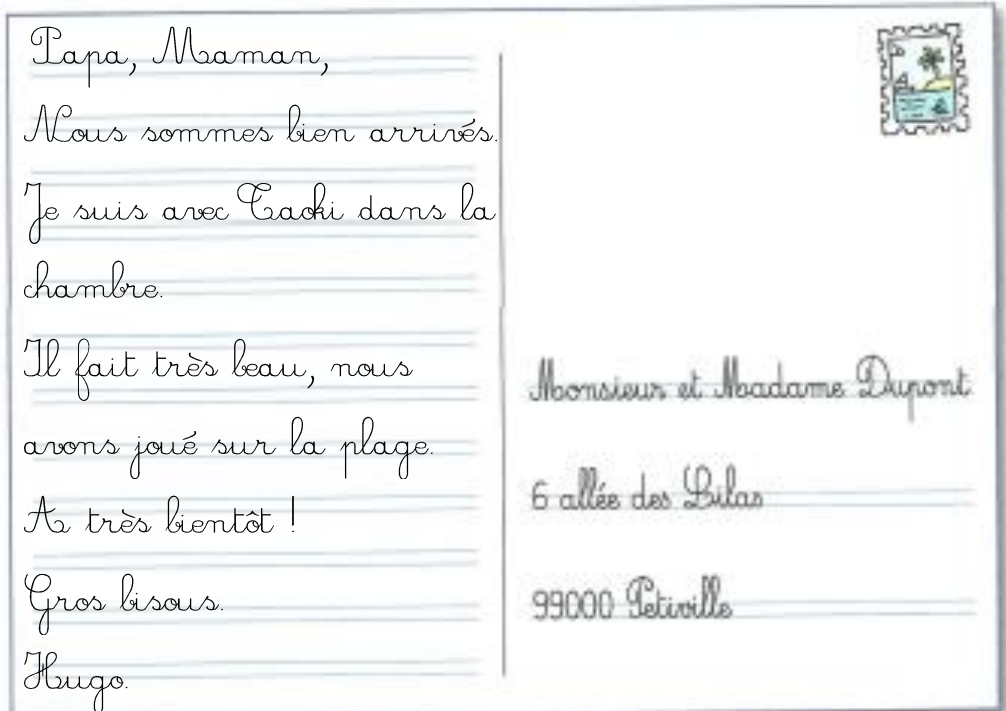 Papa, Maman,
Nous sommes bien arrivés.
Je suis avec Taoki dans la
chambre.
Il fait très beau, nous
avons joué sur la plage.
A très bientôt !
Gros bisous.
Hugo.
Monsieur et Madame Dupont
6 allée des Lilas
99000 Petiville